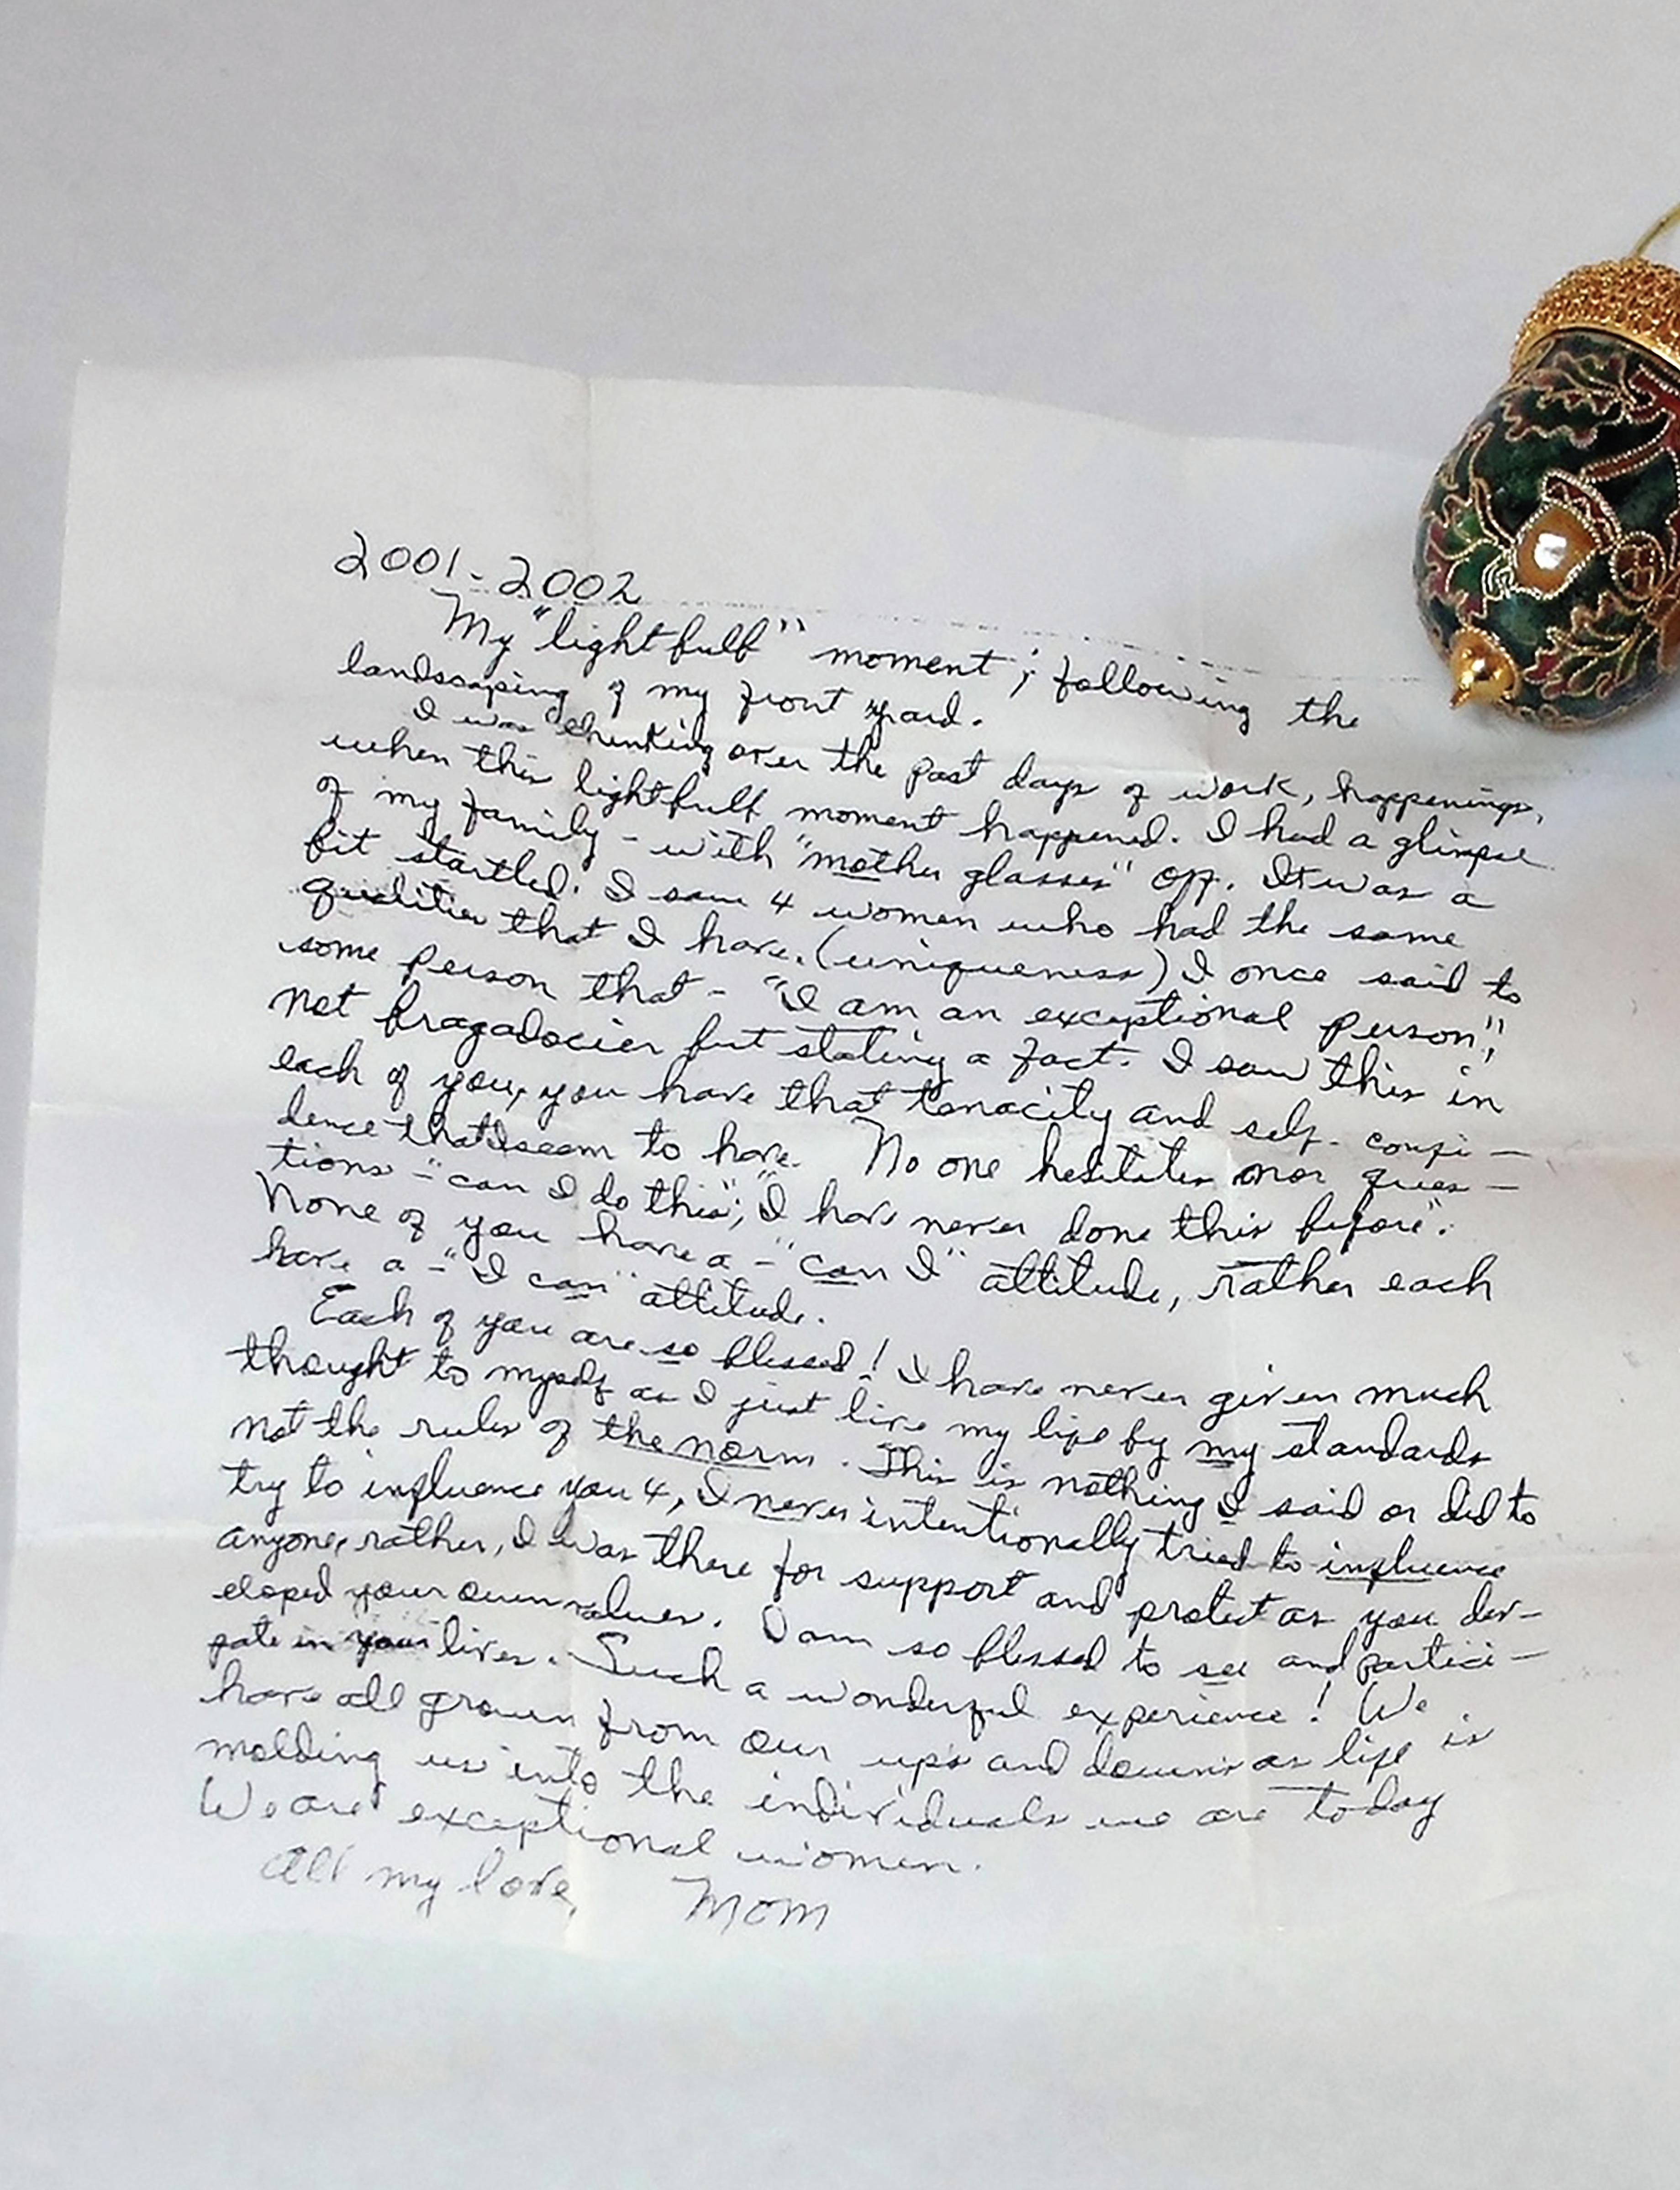 2001-2002
My "lightbulb" moment; following the
landscaping of my front yard.
I was thinking over the past days of work, happenings,
when this lightbulb moment happened. I had a glimpse
of my family - with "mother glasses" off. It was a
bit startled. I saw 4 women who had the same
qualities that I have. (uniqueness) I once said to
some person that - "I am an exceptional person",
not bragadocier but stating a fact. I saw this in
each of you, you have that tenacity and self-confi-
dence that I seem to have. No one hesitates nor ques-
tions - "can I do this"; "I have never done this before".
None of you have a - "can I" attitude, rather each
have a - "I can" attitude.
Each of you are so blessed! I have never given much
thought to myself as I just live my life by my standards
not the rules of the norm. This is nothing I said or did to
try to influence you 4, I never intentionally tried to influence
anyone, rather, I was there for support and protect as you dev-
eloped your own values. I am so blessed to see and partici-
pate in your lives. Such a wonderful experience! We
have all grown from our ups and downs as life is
molding us into the individuals we are today
We are exceptional women.
All my love, Mom